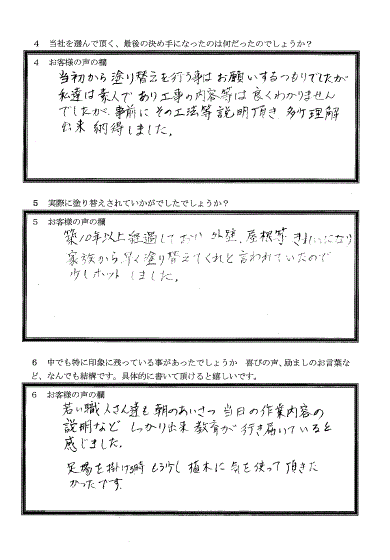 4 当社を選んで頂く、最後の決め手になったのは何だったのでしょうか？
4 お客様の声の欄
当初から塗り替えを行う事はお願いするつもりでしたが
私達は素人であり工事の内容等は良くわかりません
でしたが、事前にその工法等説明頂き 多々理解
出来 納得しました。
5 実際に塗り替えされていかがでしたでしょうか？
5 お客様の声の欄
築10年以上経過しており 外壁、屋根等 きれいになり
家族から早く塗り替えてくれと言われていたので
少しホットしました。
6 中でも特に印象に残っている事があったでしょうか 喜びの声、励ましのお言葉な
ど、なんでも結構です。具体的に書いて頂けると嬉しいです。
6 お客様の声の欄
若い職人さん達も 朝のあいさつ 当日の作業内容の
説明など しっかり出来 教育が行き届いていると
感じました。
足場を掛ける時 もう少し 植木に 気を使って 頂きた
かったです。